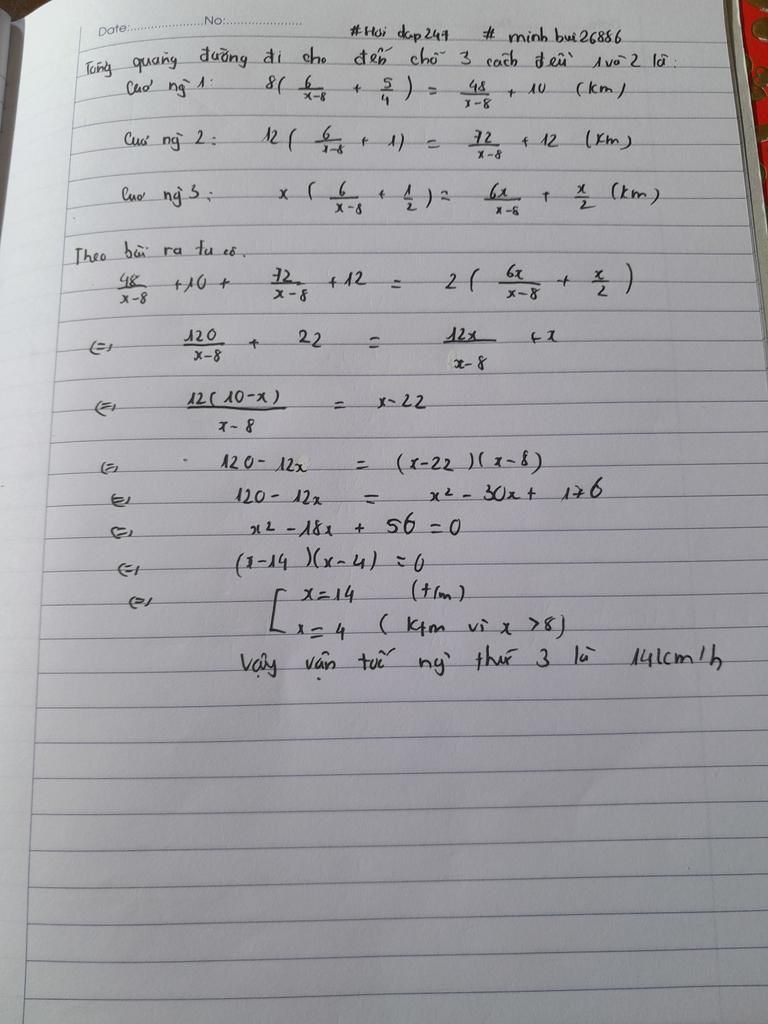 Date:.....................No:.....................
#Hoi dap247 # minhbui26886
Tổng quãng đường đi cho đến chỗ 3 cách đều 1 và 2 là:
Của ng 1: 8( 6/(x-8) + 5/4 ) = 48/(x-8) + 10 (km)
Của ng 2: 12( 6/(x-8) + 1) = 72/(x-8) + 12 (km)
Của ng 3: x( 6/(x-8) + 1/2 ) = 6x/(x-8) + x/2 (km)
Theo bài ra ta có.
48/(x-8) +10 + 72/(x-8) +12 = 2( 6x/(x-8) + x/2 )
(=) 120/(x-8) + 22 = 12x/(x-8) + x
(=) 12(10-x)/(x-8) = x-22
(=) 120-12x = (x-22)(x-8)
(=) 120-12x = x² - 30x + 176
(=) x² -18x + 56 = 0
(=) (x-14)(x-4) = 0
(=) [ x=14 (t/m)
x=4 (ktm vì x >8)
Vậy vận tốc ng thứ 3 là 14km/h